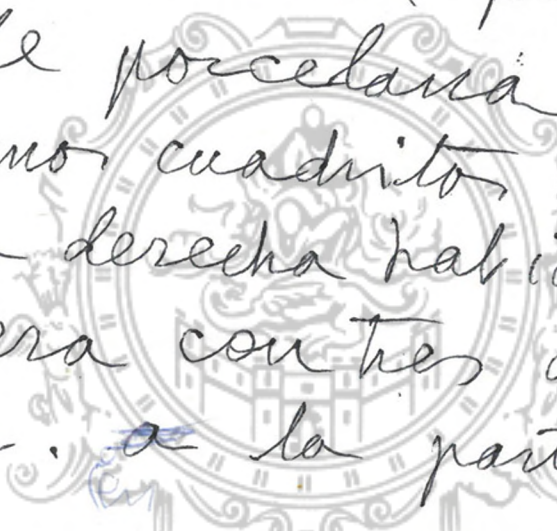 de porcelana
unos cuadritos
derecha habi
era con tres
a la part